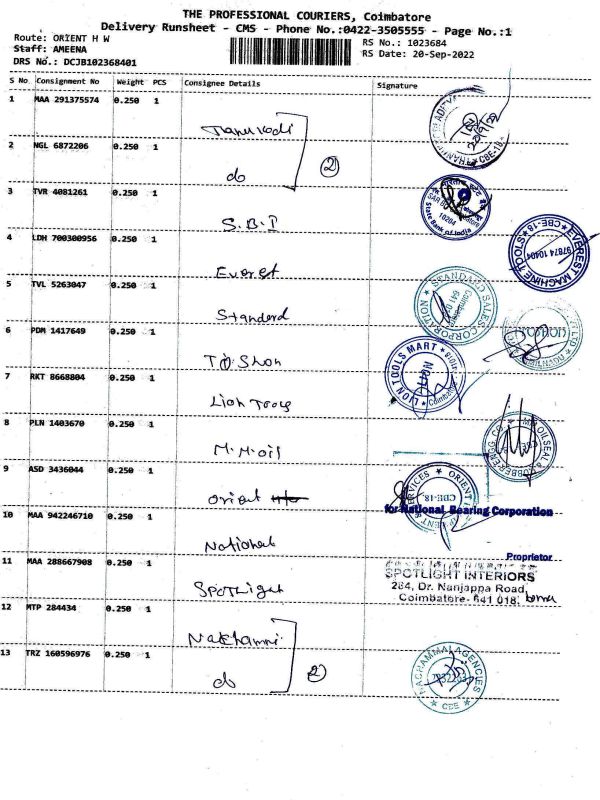 THE PROFESSIONAL COURIERS, Coimbatore
Delivery Runsheet - CMS - Phone No.:0422-3505555 - Page No.:1
Route: ORIENT H W
RS No.: 1023684
Staff: AMEENA
RS Date: 20-Sep-2022
DRS No.: DCJB102368401
S No Consignment No Weight PCS Consignee Details Signature
1 MAA 291375574 0.250 1
CBE-18
2 NGL 6872206 0.250 1
do 2
3 TVR 4081261 0.250 1
S.B.I
10204
State Bank of India
4 LDH 700300956 0.250 1
Everest
EVEREST MACHINE TOOLS CBE-18
97874 10404
5 TVL 5263047 0.250 1
Standard
STANDARD SALES CORPORATION
Coimbatore
641 018
6 PDM 1417649 0.250 1
7 RKT 8668804 0.250 1
Lion Tools
LION TOOLS MART
LION
Coimbatore
8 PLN 1403670 0.250 1
M.M.oil
MM OILSEAL
RUBBER ENGG CO.
9 ASD 3436044 0.250 1
orient
ORIENT
SERVICES
CBE-18
10 MAA 942246710 0.250 1
for National Bearing Corporation
National
Proprietor
11 MAA 288667908 0.250 1
SPOTLight
SPOTLIGHT INTERIORS
284, Dr. Nanjappa Road,
Coimbatore- 641 018.
12 MTP 284434 0.250 1
13 TRZ 160596976 0.250 1
do 2
NACHAMMAI AGENCIES
CBE